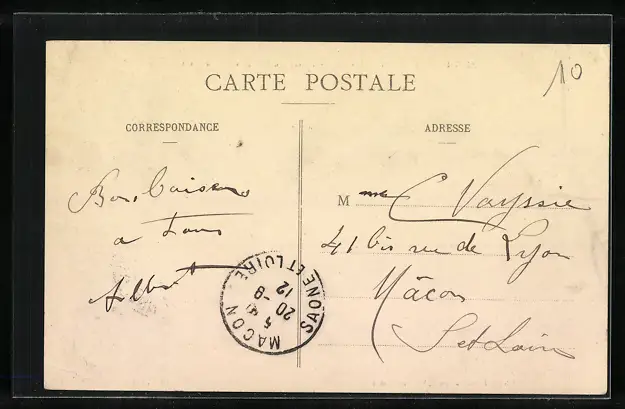 10
CARTE POSTALE
CORRESPONDANCE
ADRESSE
Bons baisers
a tous
Albert
Mme C Vayssie
41 bis rue de Lyon
Mâcon
S et Loire
MACON
5
20 -8
12
SAONE ET LOIRE